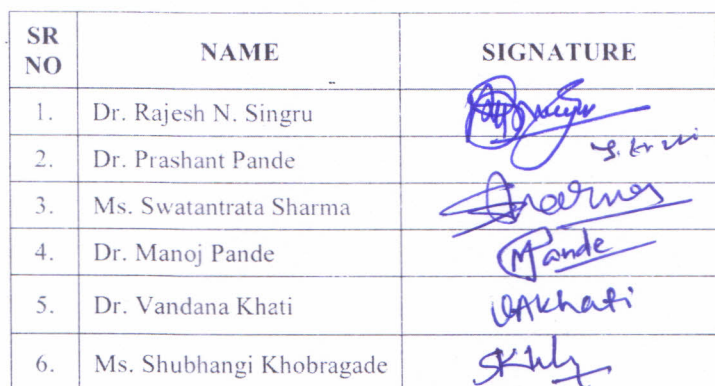 SR NO NAME SIGNATURE
1. Dr. Rajesh N. Singru
2. Dr. Prashant Pande
3. Ms. Swatantrata Sharma
4. Dr. Manoj Pande MPande
5. Dr. Vandana Khati VAKhati
6. Ms. Shubhangi Khobragade